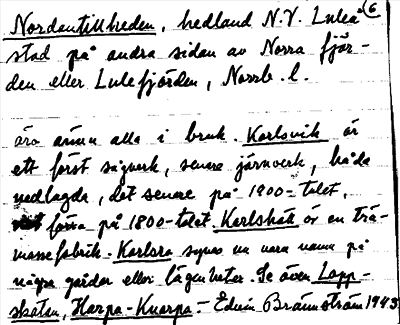 Nordantillheden, hedland N.V. Luleå (6
stad på andra sidan av Norra fjär-
den eller Lulefjärden, Norrb. l.
äro ännu alla i bruk. Karlsvik är
ett först sågverk, senare järnverk, båda
nedlagda, det senare på 1900-talet,
förra på 1800-talet. Karlshäll är en trä-
massefabrik. Karlsro synes en vara namn på
några gårdar eller lägenheter. Se även Lapp-
skatan, Harpa-Knarpa. - Edvin Brännström 1943